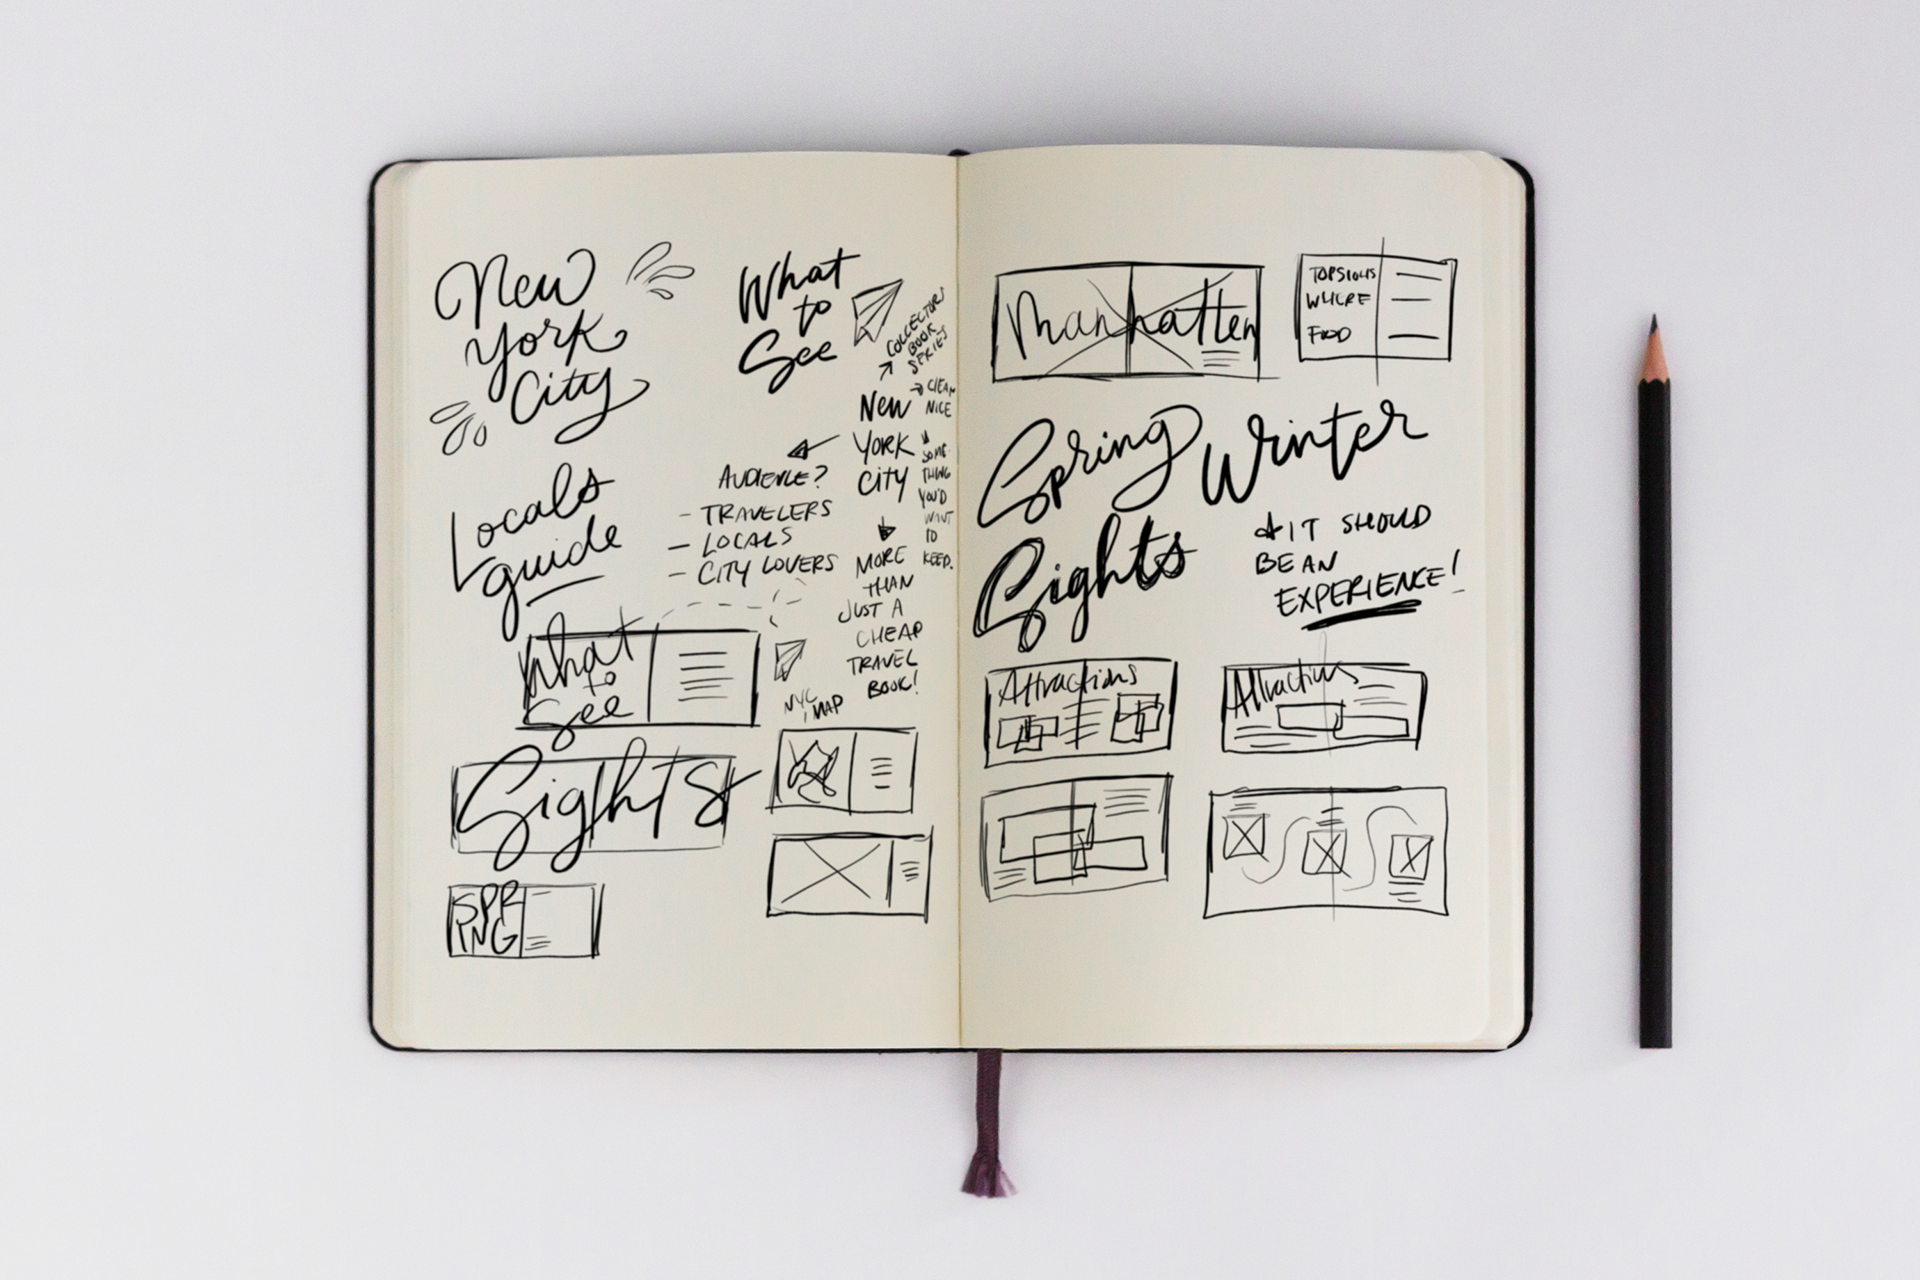 New
York
City
Locals
guide
What
to
See
COLLECTORS
BOOK
SERIES
→ CLEAN
NICE
SOME
THING
YOU'D
WANT
TO
KEEP.
New
YORK
CITY
AUDIENCE?
- TRAVELERS
- LOCALS
- CITY LOVERS
MORE
THAN
JUST A
CHEAP
TRAVEL
BOOK!
What
to
See
NYC
MAP
Sights
SPR
ING
Manhatten
WHERE
FOOD
Spring Winter
Sights
IT SHOULD
BE AN
EXPERIENCE!
Attractions
Attractions